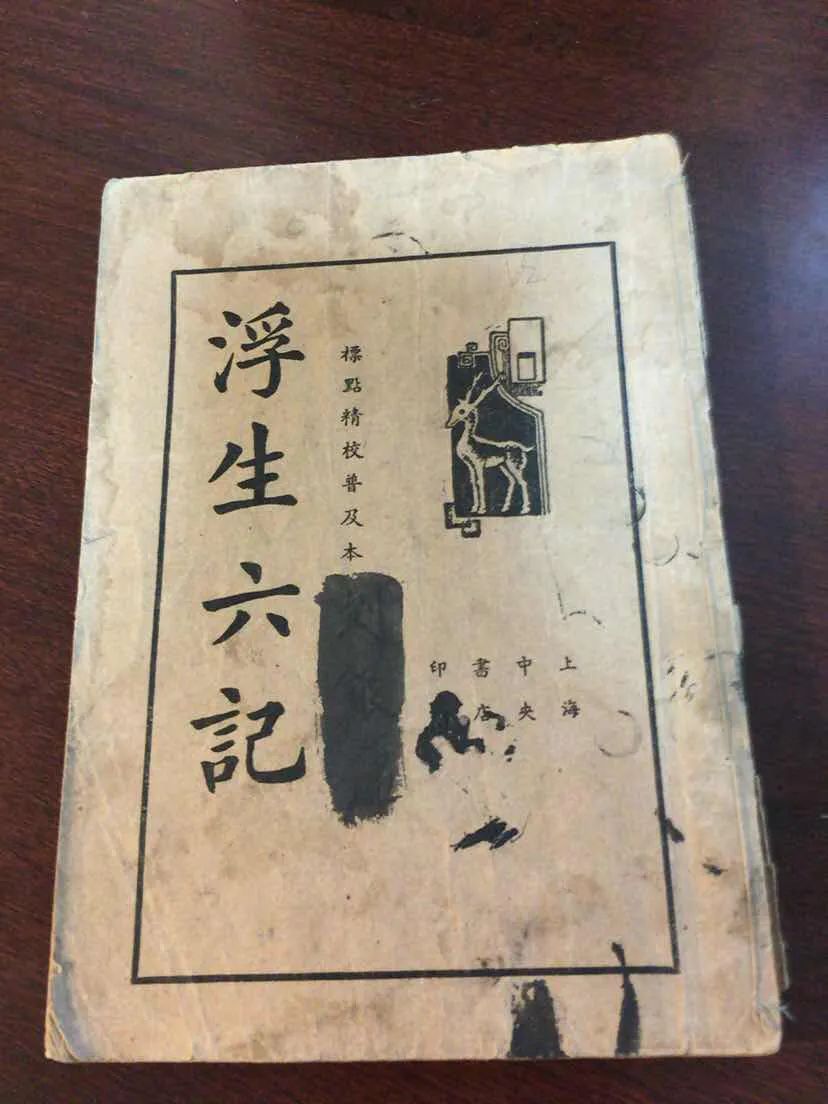 上海
中央
書店
印
標點精校普及本
浮生六記